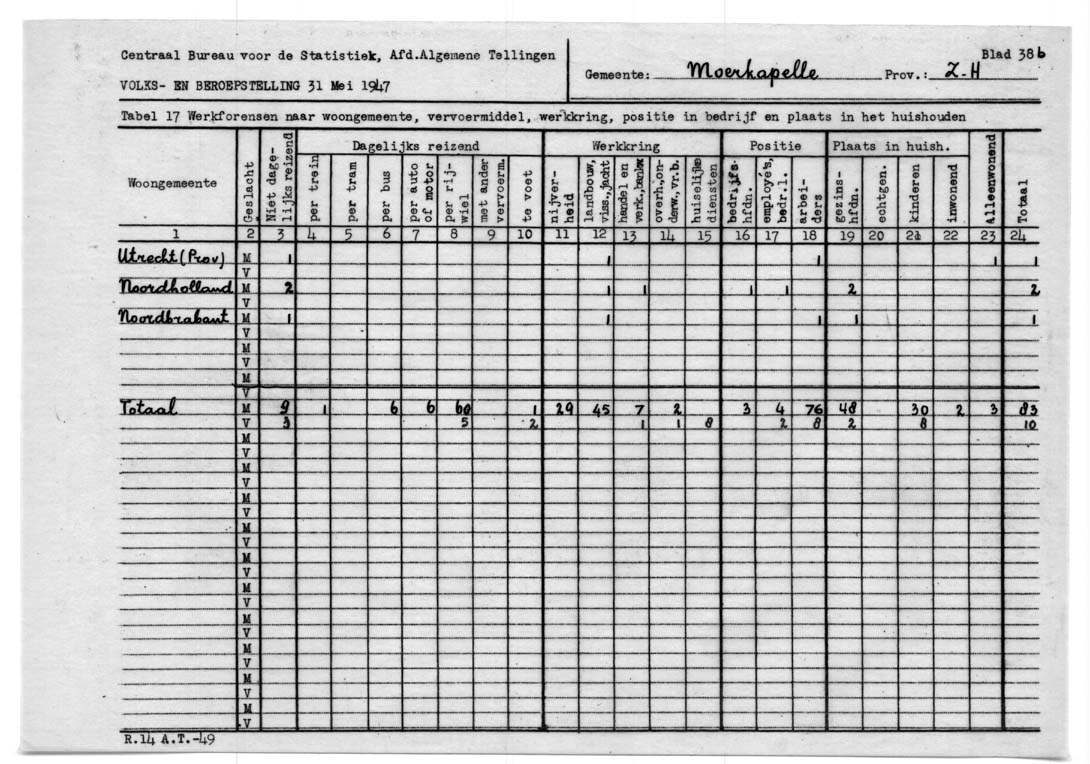 Centraal Bureau voor de Statistiek, Afd.Algemene Tellingen
VOLKS- EN BEROEPSTELLING 31 Mei 1947
Gemeente: Moerkapelle Prov.: Z-H
Blad 38b
Tabel 17 Werkforensen naar woongemeente, vervoermiddel, werkkring, positie in bedrijf en plaats in het huishouden
Woongemeente | Geslacht | Niet dage-lijks reizend | Dagelijks reizend | Werkkring | Positie | Plaats in huish. | Alleenwonend | Totaal
per trein | per tram | per bus | per auto of motor | per rij-wiel | met ander vervoerm. | te voet | nijver-heid | landbouw, viss.,jacht | handel en verk.,bankw | overh.,on-derw.,vr.b. | huiselijke diensten | bedrijfs-hfdn. | employé's, bedr.l. | arbei-ders | gezins-hfdn. | echtgen. | kinderen | inwonend
1 2 3 4 5 6 7 8 9 10 11 12 13 14 15 16 17 18 19 20 21 22 23 24
Utrecht (Prov) M 1 1 1 1 1
V
Noordholland M 2 1 1 1 1 2 2
V
Noordbrabant M 1 1 1 1 1
V
M
V
M
V
Totaal M 9 1 6 6 60 1 29 45 7 2 3 4 76 48 30 2 3 83
V 3 5 2 1 1 8 2 8 2 8 10
M
V
M
V
M
V
M
V
M
V
M
V
M
V
M
V
M
V
M
V
R.14 A.T.-49